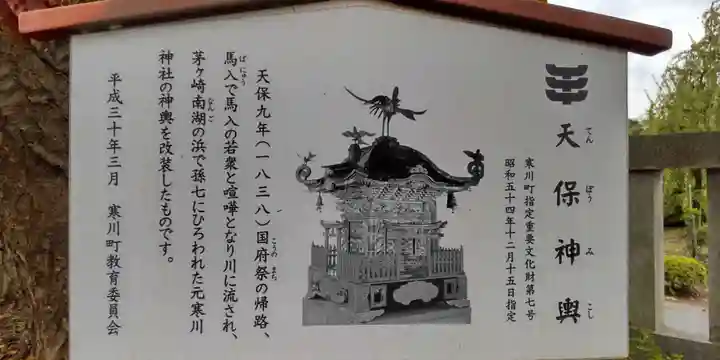 天保神輿
てんぽうみこし
寒川町指定重要文化財第七号
昭和五十四年十二月十五日指定
天保九年(一八三八)国府祭の帰路、
こうのまち
馬入で馬入の若衆と喧嘩となり川に流され、
ばにゅう
茅ヶ崎南湖の浜で孫七にひろわれた元寒川
なんご
神社の神輿を改装したものです。
平成三十年三月 寒川町教育委員会